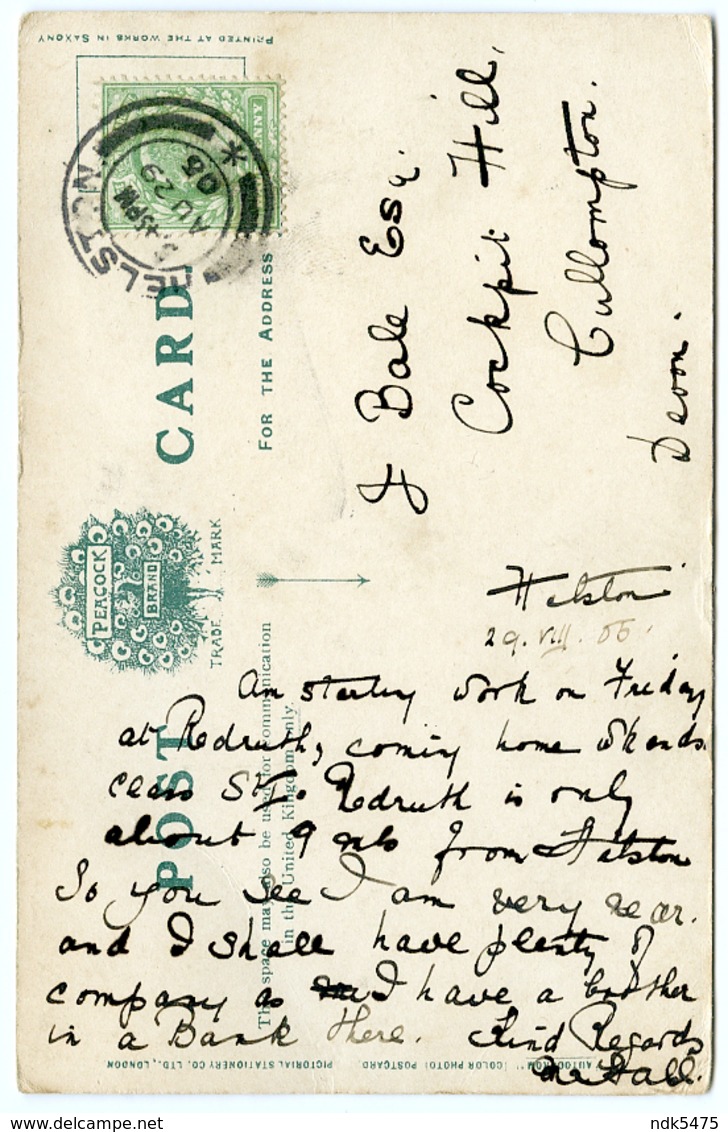 PRINTED AT THE WORKS IN SAXONY
POST CARD
PEACOCK
BRAND
TRADE MARK
FOR THE ADDRESS
This space may also be used for communication
in the United Kingdom only.
HELSTON
45PM
AU 29
05
J Bale Esq.
Cockpit Hill,
Cullompton.
Devon.
Helston
29.VIII.05.
Am starting work on Friday
at Redruth, coming home wkends.
Redruth is only
about 9 mls from Helston
So you see I am very near.
and I shall have plenty of
company as I have a brother
in a Bank there. Kind Regards
"AUTOCHROM" (COLOR PHOTO) POSTCARD. PICTORIAL STATIONERY CO. LTD., LONDON